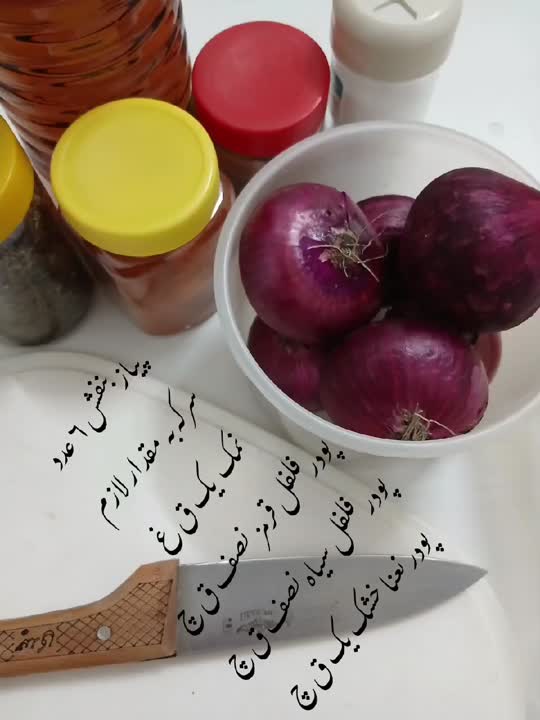 پیاز بنفش ۶ عدد
سرکه به مقدار لازم
نمک یک ق غ
پودر فلفل قرمز نصف ق چ
پودر فلفل سیاه نصف ق چ
پودر نعنا خشک یک ق چ